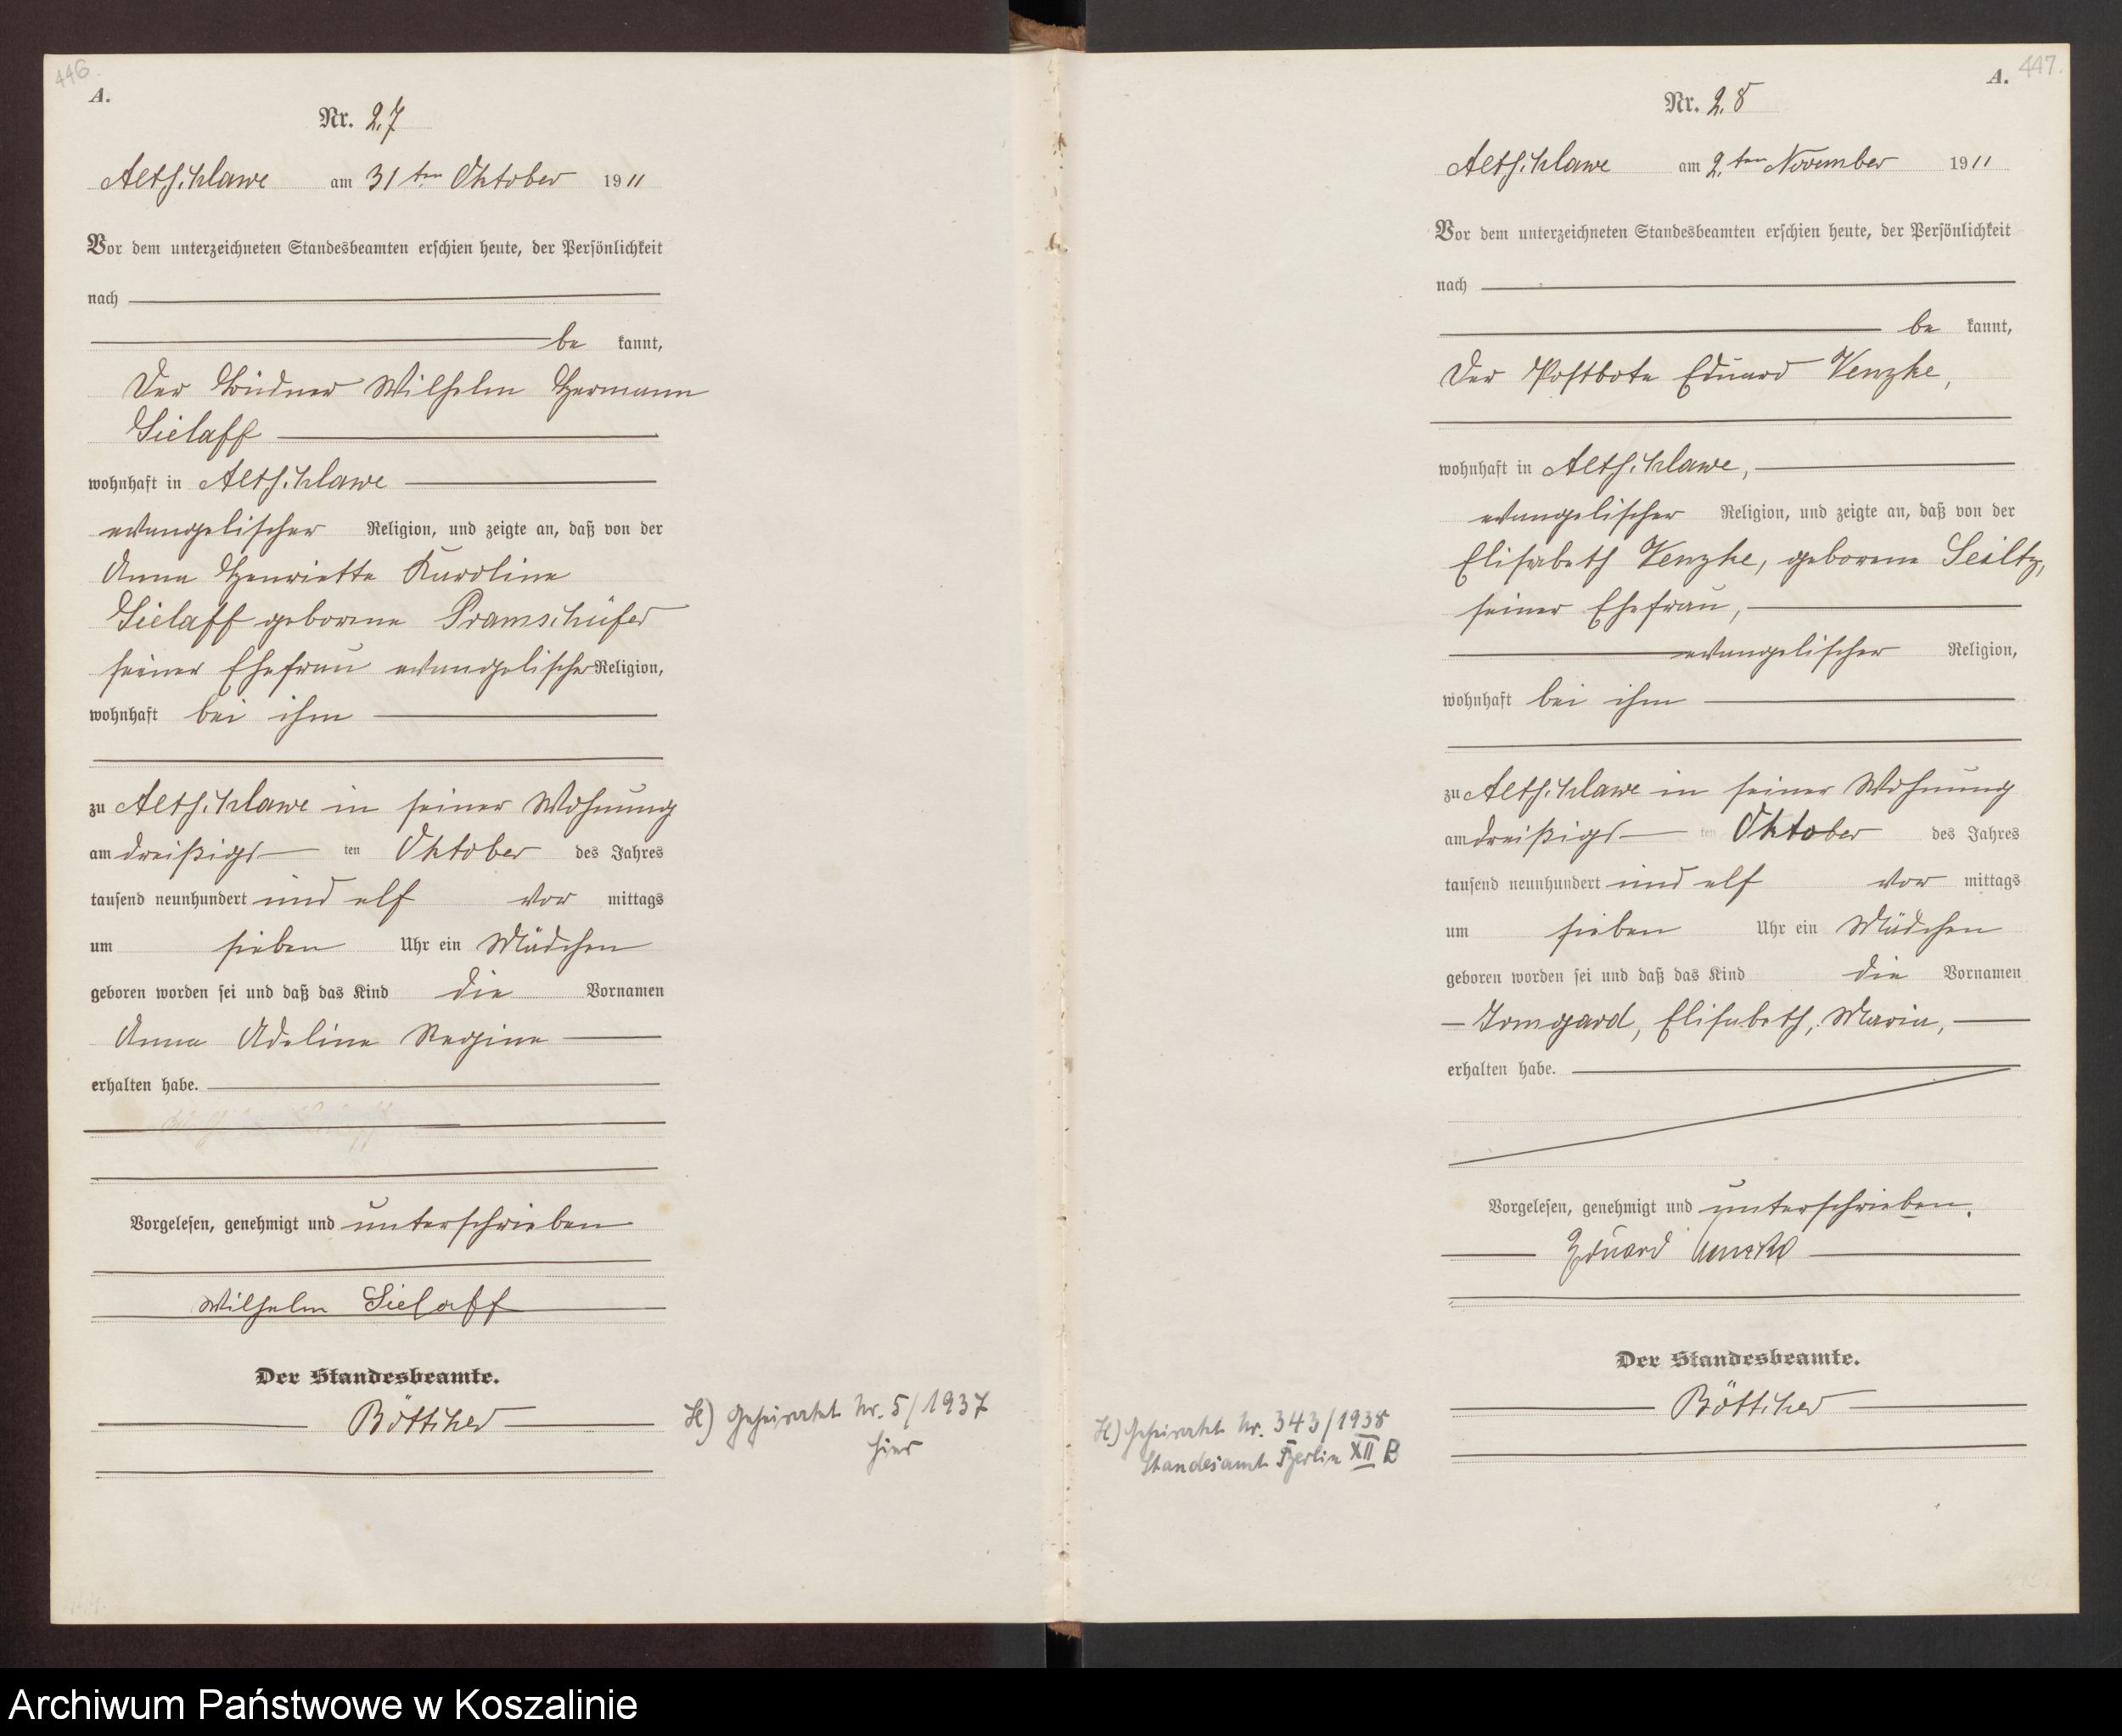 446.
A.
Nr. 27
Altschlawe am 31ten Oktober 1911
Vor dem unterzeichneten Standesbeamten erschien heute, der Persönlichkeit
nach
be kannt,
Der Büdner Wilhelm Hermann
Sielaff
wohnhaft in Altschlawe
evangelischer Religion, und zeigte an, daß von der
Anna Henriette Karoline
Sielaff geborene Pramschüfer
seiner Ehefrau evangelischer Religion,
wohnhaft bei ihm
zu Altschlawe in seiner Wohnung
am dreißigs ten Oktober des Jahres
tausend neunhundert und elf vor mittags
um sieben Uhr ein Mädchen
geboren worden sei und daß das Kind die Vornamen
Anna Adeline Regine
erhalten habe.
Vorgelesen, genehmigt und unterschrieben
Wilhelm Sielaff
Der Standesbeamte.
Böttcher
H) Geheiratet Nr. 5/1937
hier
447.
A.
Nr. 28
Altschlawe am 2.ten November 1911
Vor dem unterzeichneten Standesbeamten erschien heute, der Persönlichkeit
nach
be kannt,
Der Postbote Eduard Venzke,
wohnhaft in Altschlawe,
evangelischer Religion, und zeigte an, daß von der
Elisabeth Venzke, geborene
seiner Ehefrau,
evangelischer Religion,
wohnhaft bei ihm
zu Altschlawe in seiner Wohnung
am dreißigs ten Oktober des Jahres
tausend neunhundert und elf vor mittags
um sieben Uhr ein Mädchen
geboren worden sei und daß das Kind die Vornamen
Irmgard, Elisabeth, Maria,
erhalten habe.
Vorgelesen, genehmigt und unterschrieben.
Eduard Venzke
Der Standesbeamte.
Böttcher
H) Geheiratet Nr. 343/1938
Standesamt Berlin XII B
Archiwum Państwowe w Koszalinie